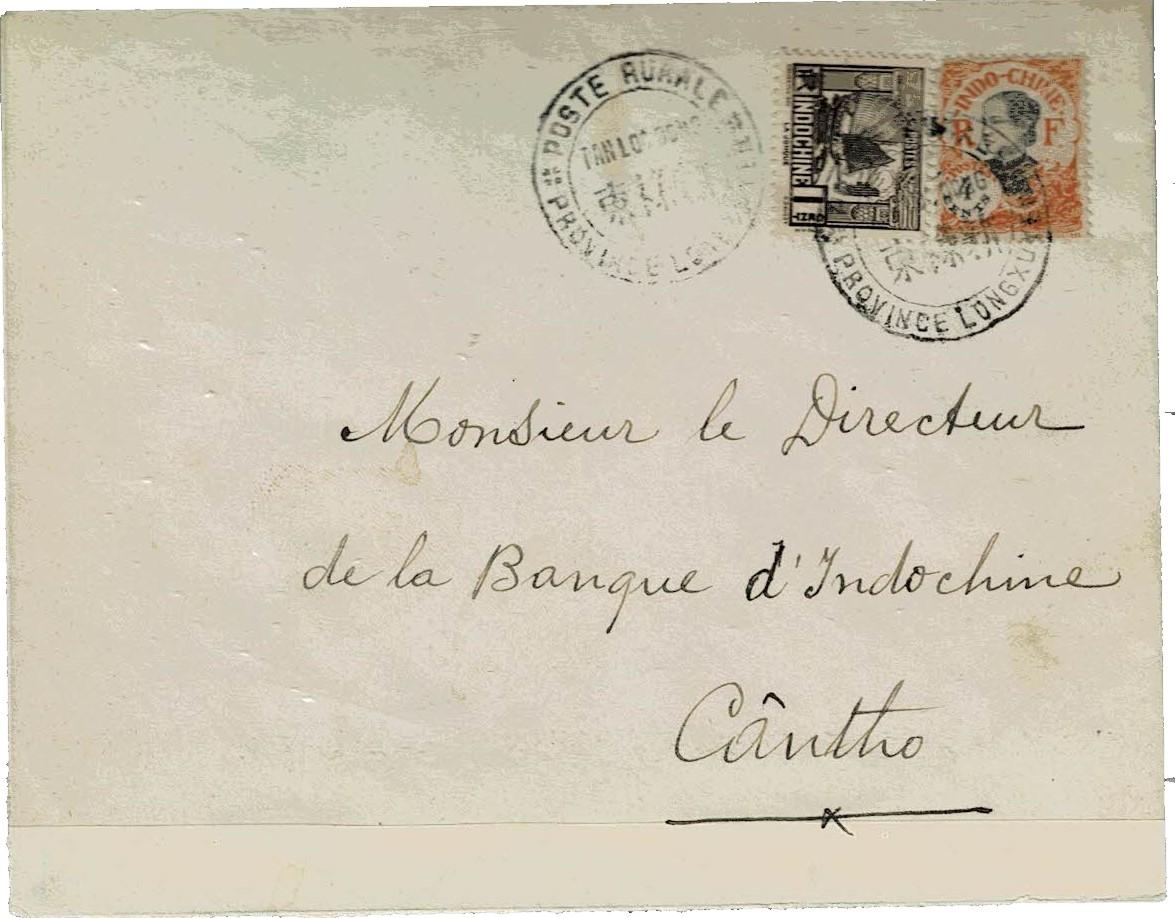 POSTE RURALE
TAN LO
PROVINCE LON
INDOCHINE
POSTES
1
INDO-CHINE
R F
4
CENTS
PROVINCE LONGXU
Monsieur le Directeur
de la Banque d'Indochine
Cântho